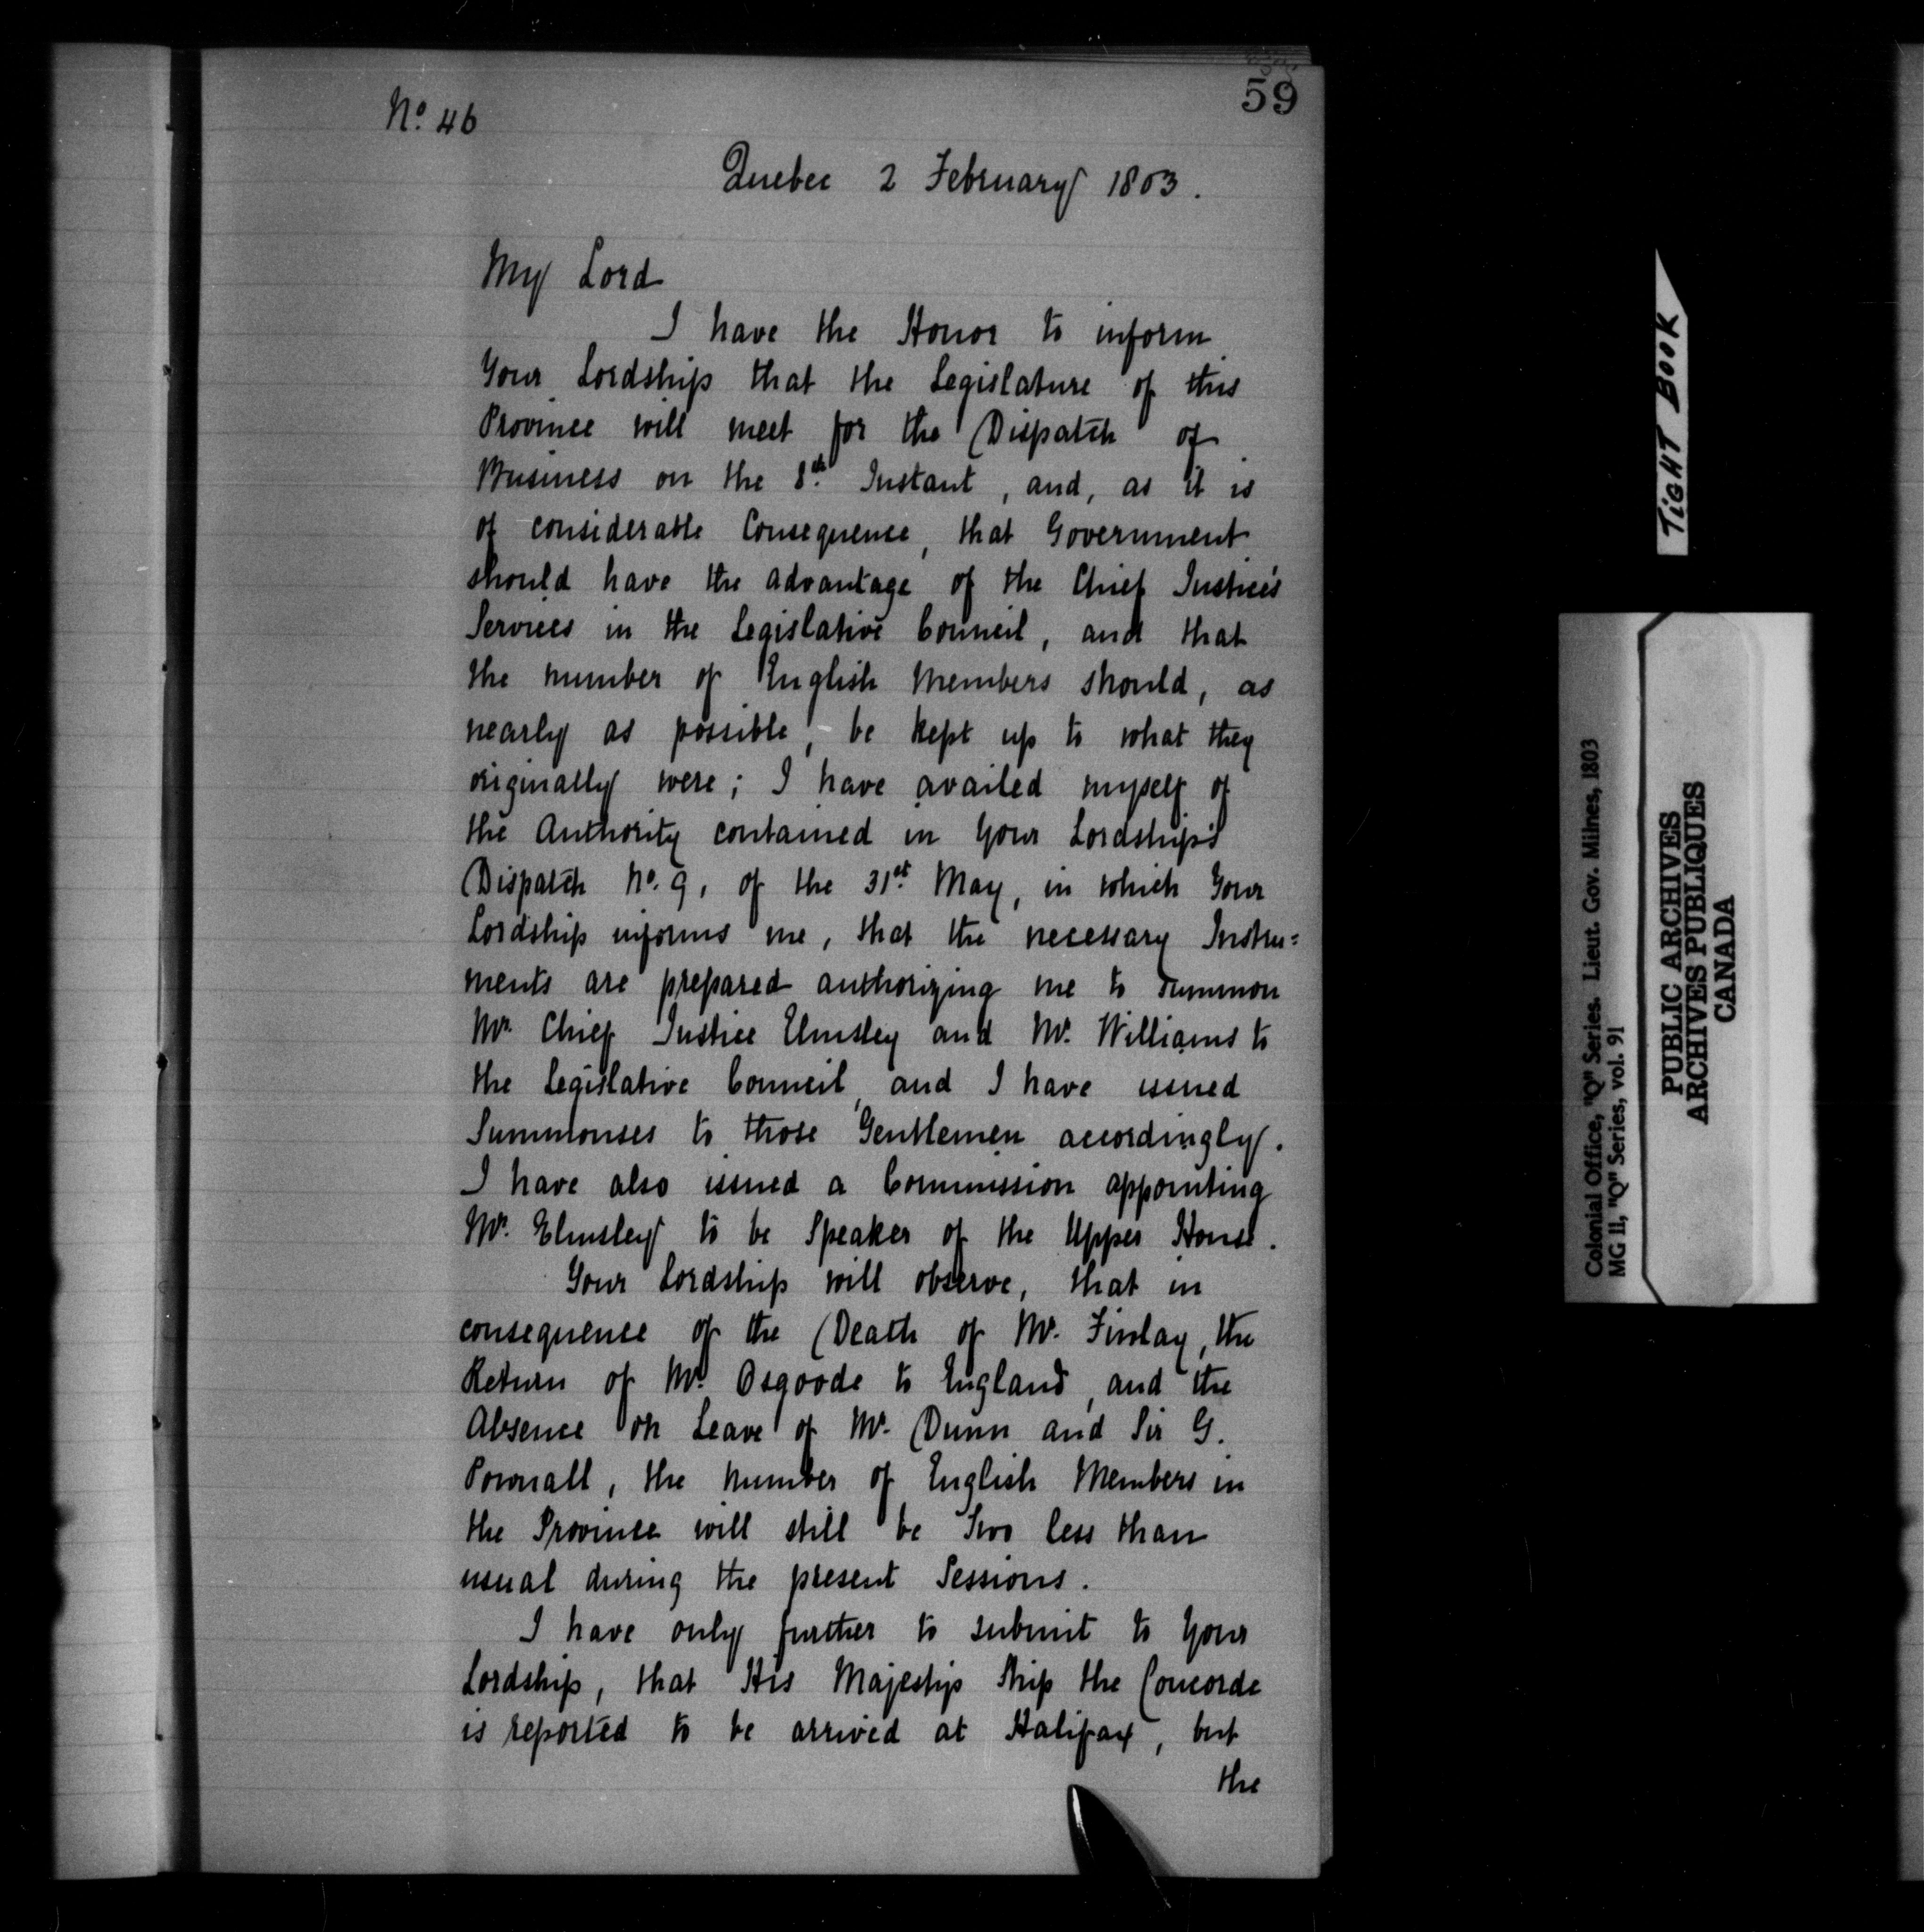 59
No. 46
Quebec 2 February 1803.
My Lord
I have the Honor to inform
Your Lordship that the Legislature of this
Province will meet for the Dispatch of
Business on the 8th. Instant, and, as it is
of considerable Consequence, that Government
should have the advantage of the Chief Justice's
Services in the Legislative Council, and that
the number of English Members should, as
nearly as possible, be kept up to what they
originally were; I have availed myself of
the Authority contained in Your Lordship's
Dispatch No. 9, of the 31st. May, in which Your
Lordship informs me, that the necessary Instru=
ments are prepared authorizing me to summon
Mr. Chief Justice Elmsley and Mr. Williams to
the Legislative Council, and I have issued
Summonses to those Gentlemen accordingly.
I have also issued a Commission appointing
Mr. Elmsley to be Speaker of the Upper House.
Your Lordship will observe, that in
consequence of the Death of Mr. Finlay, the
Return of Mr. Osgoode to England, and the
Absence on Leave of Mr. Dunn and Sir G.
Pownall, the number of English Members in
the Province will still be Two less than
usual during the present Sessions.
I have only further to submit to Your
Lordship, that His Majestys Ship the Concorde
is reported to be arrived at Halifax, but
the
TIGHT BOOK
Colonial Office, "Q" Series. Lieut. Gov. Milnes, 1803
MG 11, "Q" Series, vol. 91
PUBLIC ARCHIVES
ARCHIVES PUBLIQUES
CANADA